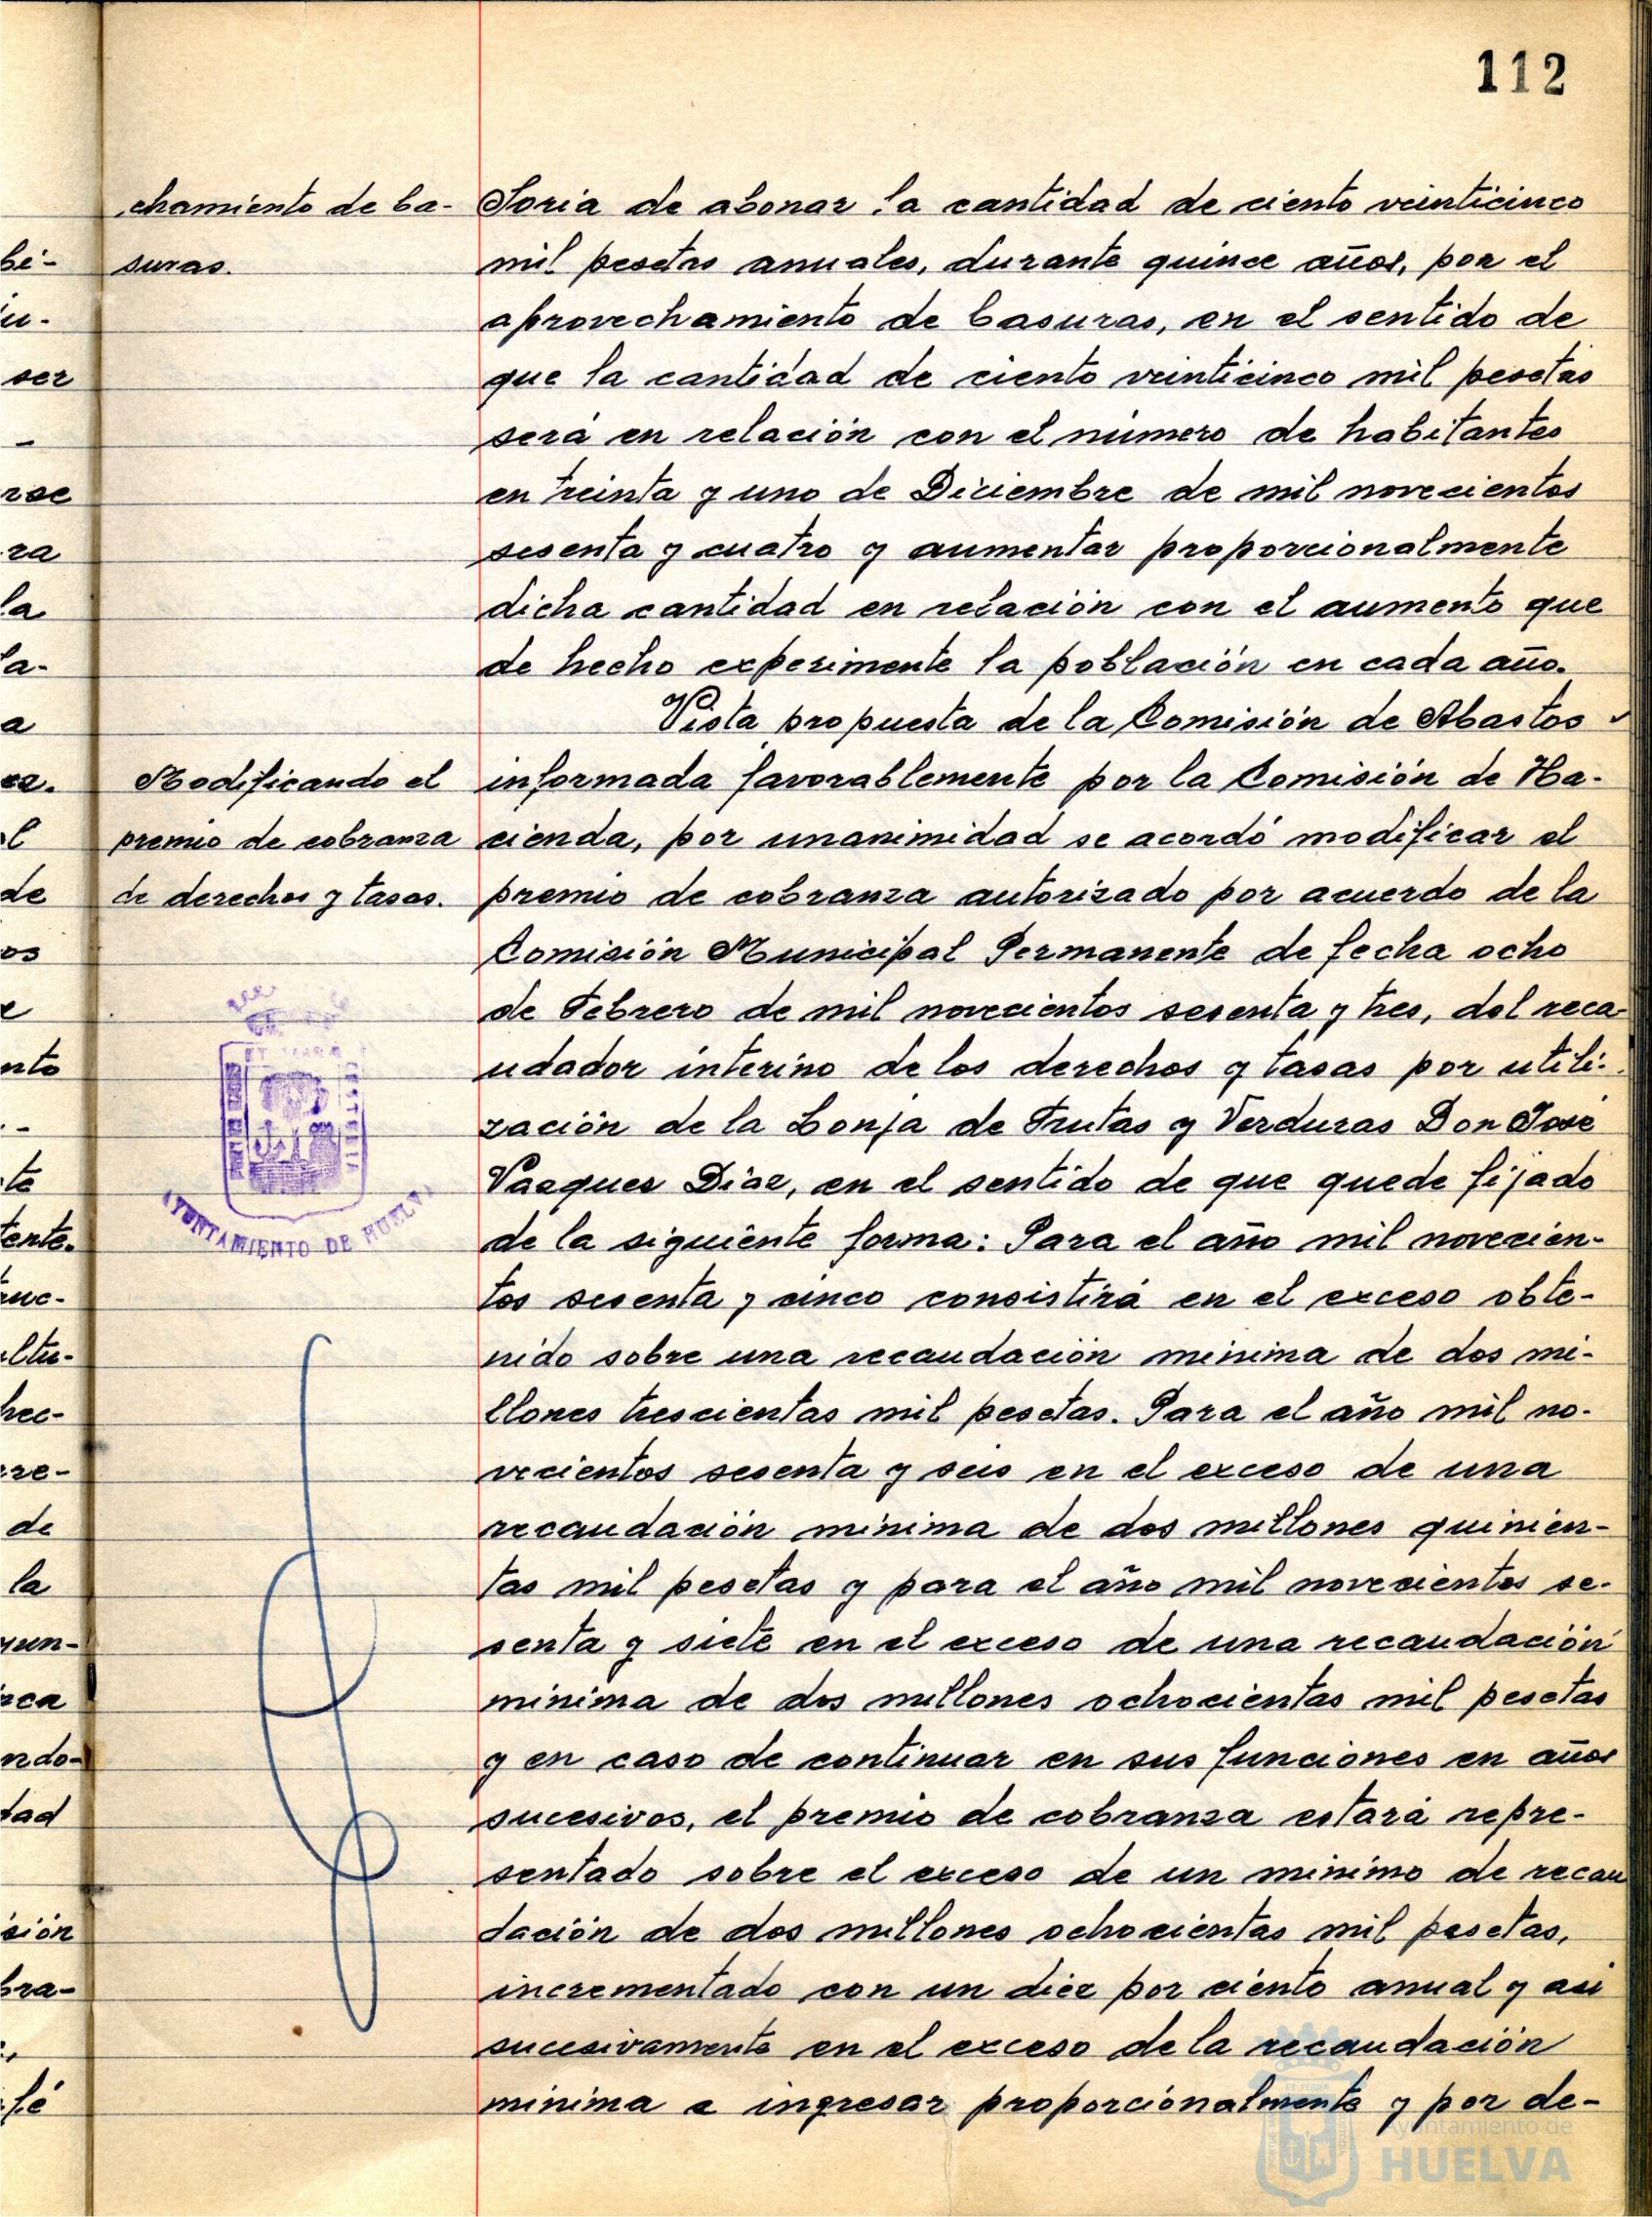 112
chamiento de ba-
suras.
Soria de abonar la cantidad de ciento veinticinco
mil pesetas anuales, durante quince años, por el
aprovechamiento de basuras, en el sentido de
que la cantidad de ciento veinticinco mil pesetas
será en relación con el número de habitantes
en treinta y uno de Diciembre de mil novecientos
sesenta y cuatro y aumentar proporcionalmente
dicha cantidad en relación con el aumento que
de hecho experimente la población en cada año.
Vista propuesta de la Comisión de Abastos
Modificando el
premio de cobranza
de derechos y tasas.
informada favorablemente por la Comisión de Ha-
cienda, por unanimidad se acordó modificar el
premio de cobranza autorizado por acuerdo de la
Comisión Municipal Permanente de fecha ocho
de Febrero de mil novecientos sesenta y tres, del reca-
udador interino de los derechos y tasas por utili-
zación de la Lonja de Frutas y Verduras Don José
Vazquez Diaz, en el sentido de que quede fijado
de la siguiente forma: Para el año mil novecien-
tos sesenta y cinco consistirá en el exceso obte-
nido sobre una recaudación minima de dos mi-
llones trescientas mil pesetas. Para el año mil no-
vecientos sesenta y seis en el exceso de una
recaudación minima de dos millones quinien-
tas mil pesetas y para el año mil novecientos se-
senta y siete en el exceso de una recaudación
minima de dos millones ochocientas mil pesetas
y en caso de continuar en sus funciones en años
sucesivos, el premio de cobranza estará repre-
sentado sobre el exceso de un minimo de recau
dación de dos millones ochocientas mil pesetas,
incrementado con un diez por ciento anual y asi
sucesivamente en el exceso de la recaudación
minima a ingresar proporcionalmente y por de-
AYUNTAMIENTO DE HUELVA
Ayuntamiento de
HUELVA
bi-
ser
rse
ra
la
la-
a
de
os
nto
te
tente.
hec-
re-
de
la
yun-
ndo-
dad
sión
bra-